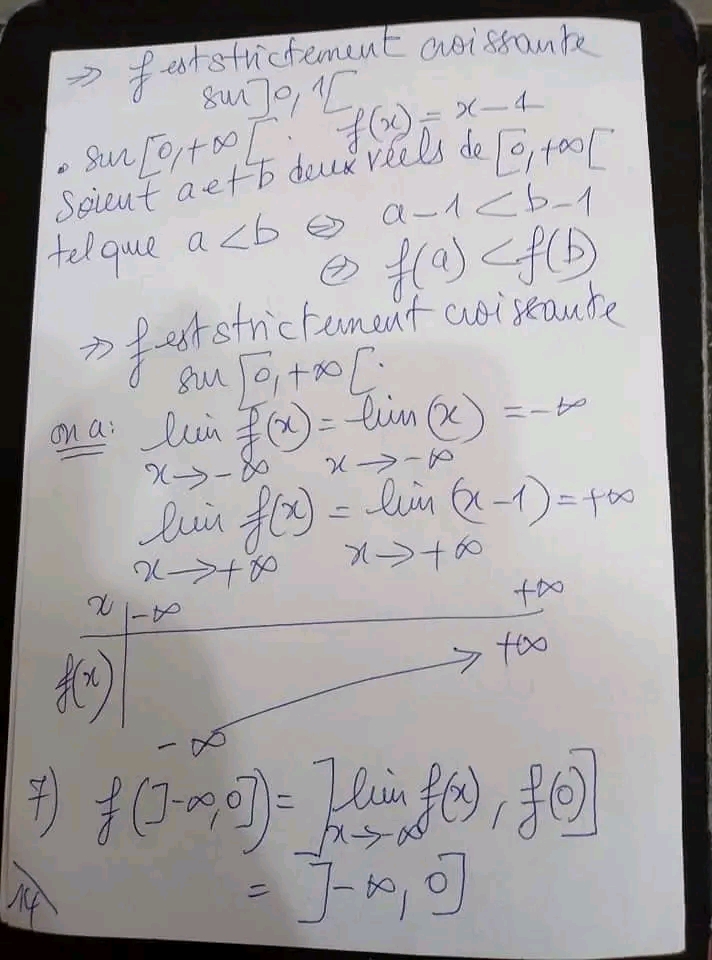 ⇒ f est strictement croissante
sur ]0, 1[
• sur [0, +∞[ : f(x) = x - 1
Soient a et b deux réels de [0, +∞[
tel que a < b ⇔ a - 1 < b - 1
⇔ f(a) < f(b)
⇒ f est strictement croissante
sur [0, +∞[.
on a: lim f(x) = lim (x) = -∞
x → -∞ x → -∞
lim f(x) = lim (x - 1) = +∞
x → +∞ x → +∞
x -∞ +∞
f(x) +∞
-∞
7) f(]-∞, 0]) = ]lim f(x), f(0)]
x → -∞
= ]-∞, 0]
14